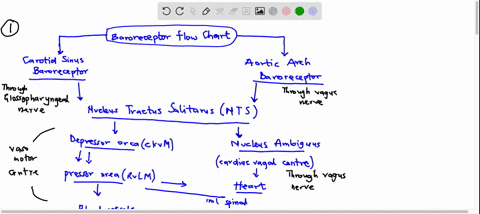 1
Baroreceptor flow Chart
Carotid Sinus
Baroreceptor
Aortic Arch
Baroreceptor
Through
Glossopharyngeal
nerve
Through vagus
nerve
Nucleus Tractus Solitarus (NTS)
Depressor area (CKVM)
Nucleus Ambiguus
(cardiac vagal centre)
vaso
motor
centre
pressor area (RVLM)
Through vagus
nerve
Heart
spinal